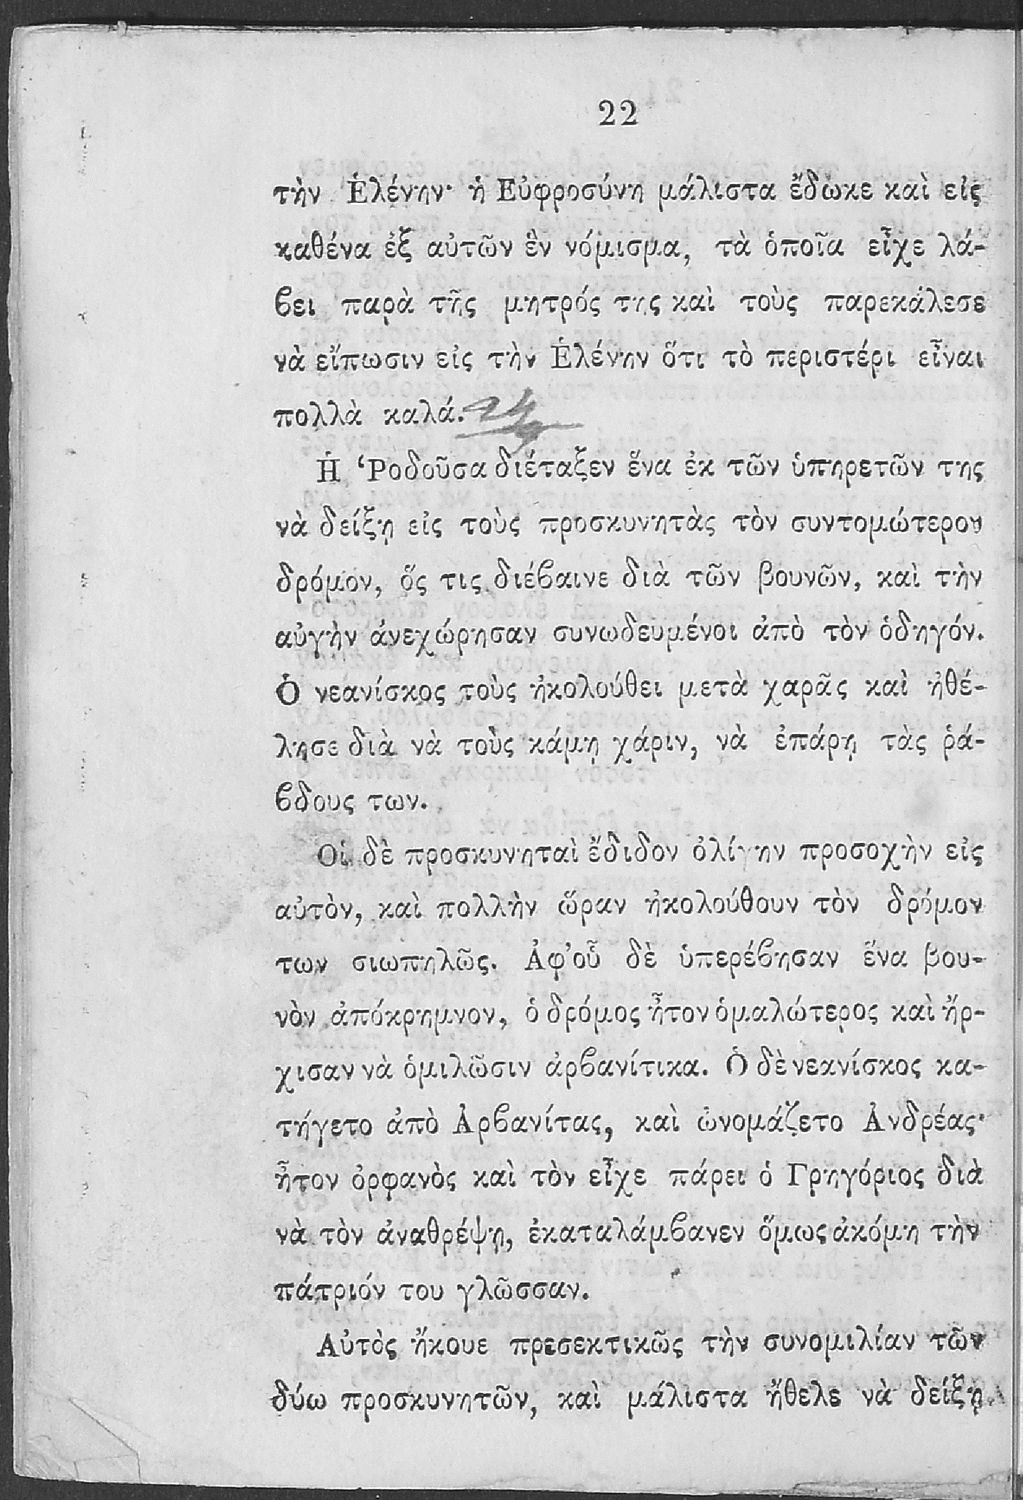 22
τὴν Ἑλένην· ἡ Εὐφροσύνη μάλιστα ἔδωκε καὶ εἰς
καθένα ἐξ αὐτῶν ἓν νόμισμα, τὰ ὁποῖα εἶχε λά-
βει παρὰ τῆς μητρός της καὶ τοὺς παρεκάλεσε
νὰ εἴπωσιν εἰς τὴν Ἑλένην ὅτι τὸ περιστέρι εἶναι
πολλὰ καλά.
Ἡ Ῥοδοῦσα διέταξεν ἕνα ἐκ τῶν ὑπηρετῶν της
νὰ δείξῃ εἰς τοὺς προσκυνητὰς τὸν συντομώτερον
δρόμον, ὅς τις διέβαινε διὰ τῶν βουνῶν, καὶ τὴν
αὐγὴν ἀνεχώρησαν συνωδευμένοι ἀπὸ τὸν ὁδηγόν.
Ὁ νεανίσκος τοὺς ἠκολούθει μετὰ χαρᾶς καὶ ἠθέ-
λησε διὰ νὰ τοὺς κάμῃ χάριν, νὰ ἐπάρῃ τὰς ῥά-
βδους των.
Οἱ δὲ προσκυνηταὶ ἔδιδον ὀλίγην προσοχὴν εἰς
αὐτὸν, καὶ πολλὴν ὥραν ἠκολούθουν τὸν δρόμον
των σιωπηλῶς. Ἀφ'οὗ δὲ ὑπερέβησαν ἕνα βου-
νὸν ἀπόκρημνον, ὁ δρόμος ἦτον ὁμαλώτερος καὶ ἤρ-
χισαν νὰ ὁμιλῶσιν ἀρβανίτικα. Ὁ δὲ νεανίσκος κα-
τήγετο ἀπὸ Ἀρβανίτας, καὶ ὠνομάζετο Ἀνδρέας·
ἦτον ὀρφανὸς καὶ τὸν εἶχε πάρει ὁ Γρηγόριος διὰ
νὰ τὸν ἀναθρέψῃ, ἐκαταλάμβανεν ὅμως ἀκόμη τὴν
πάτριόν του γλῶσσαν.
Αὐτὸς ἤκουε πρεσεκτικῶς τὴν συνομιλίαν τῶν
δύω προσκυνητῶν, καὶ μάλιστα ἤθελε νὰ δείξῃ